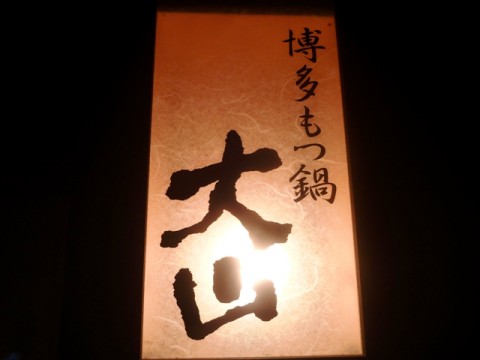 博多もつ鍋
大山